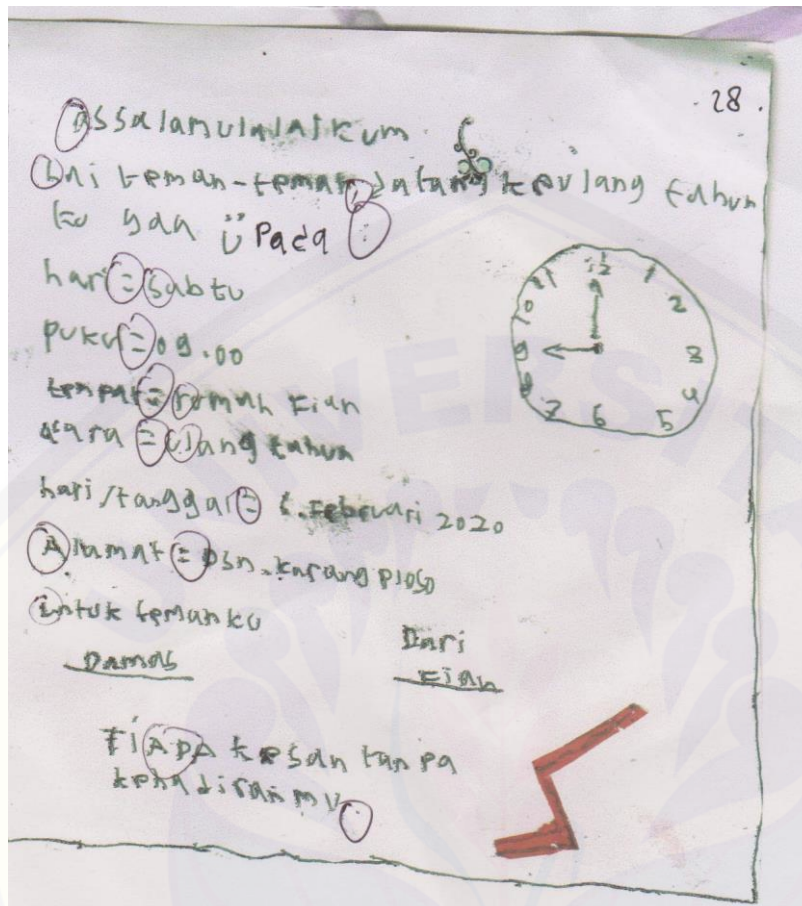 28.
assalamulalaikum
hai teman-teman, datang keulang tahun
ku yaa Pada
hari = sabtu
pukul = 09.00
tempat = rumah kian
acara = ulang tahun
hari/tanggal = 6. Februari 2020
Alamat = Dsn. karang ploso
untuk temanku
Damas
Dari
kian
TiAPA kesan tanpa
kehadiran mu
12 1 2 3 4 5 6 7 8 9 10 11